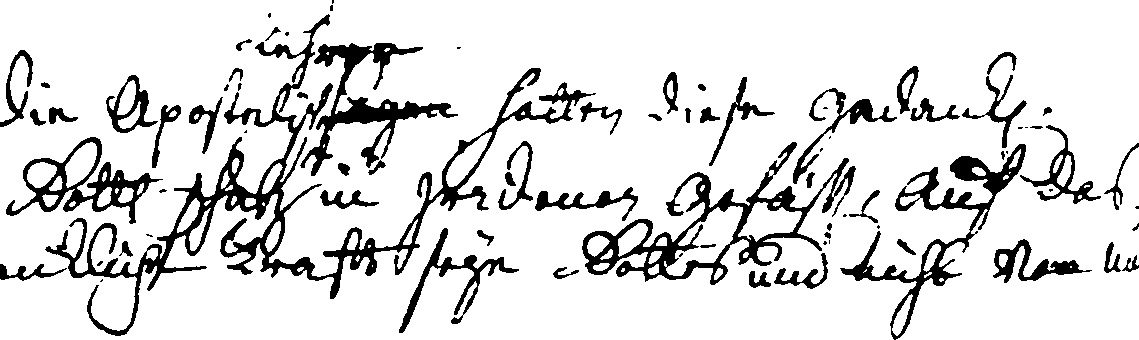 Lehrer
Die Apostolischen hatten diese Gedanken.
Gottes schatz in irdenen Gefäß, auf das
Kraft seye Gottes und nicht von